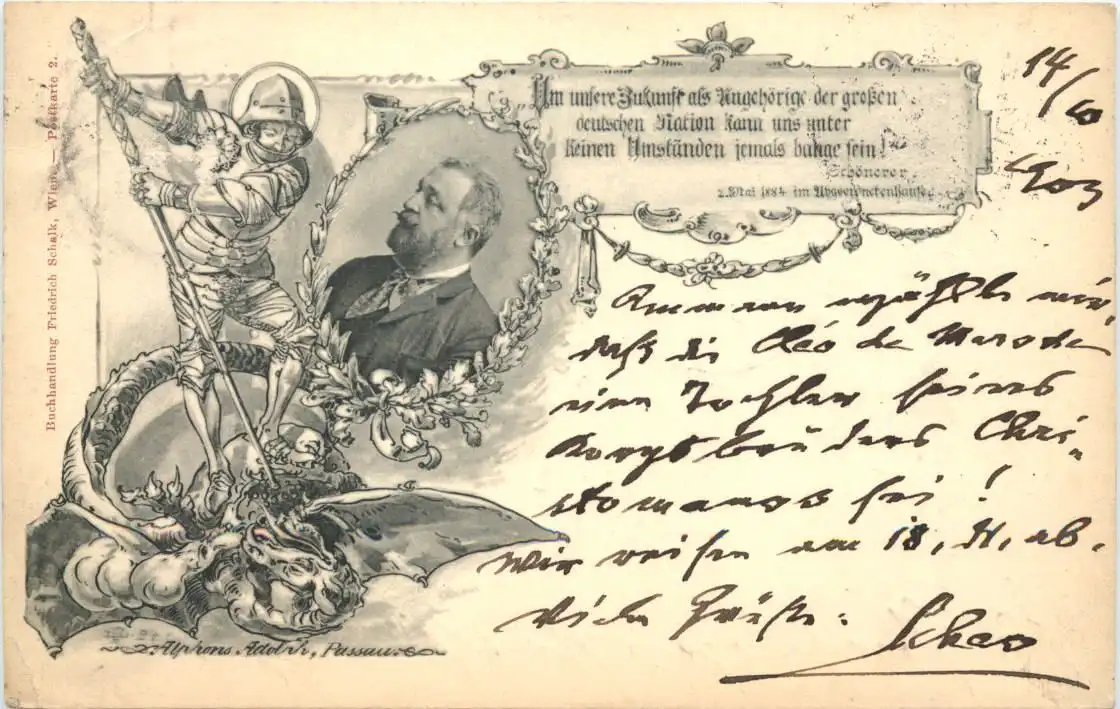 Buchhandlung Friedrich Schalk, Wien. — Postkarte 2.
Um unsere Zukunft als Angehörige der großen
deutschen Nation kann uns unter
keinen Umständen jemals bange sein!
Schönerer.
2. Mai 1884 im Abgeordnetenhause.
14/10
903
daß die Cléo de Merode
eine Tochter seines
Chri-
stomanos sei!
Wir reisen am 18, ab.
Viele Grüße:
Alphons Adolph, Passau.